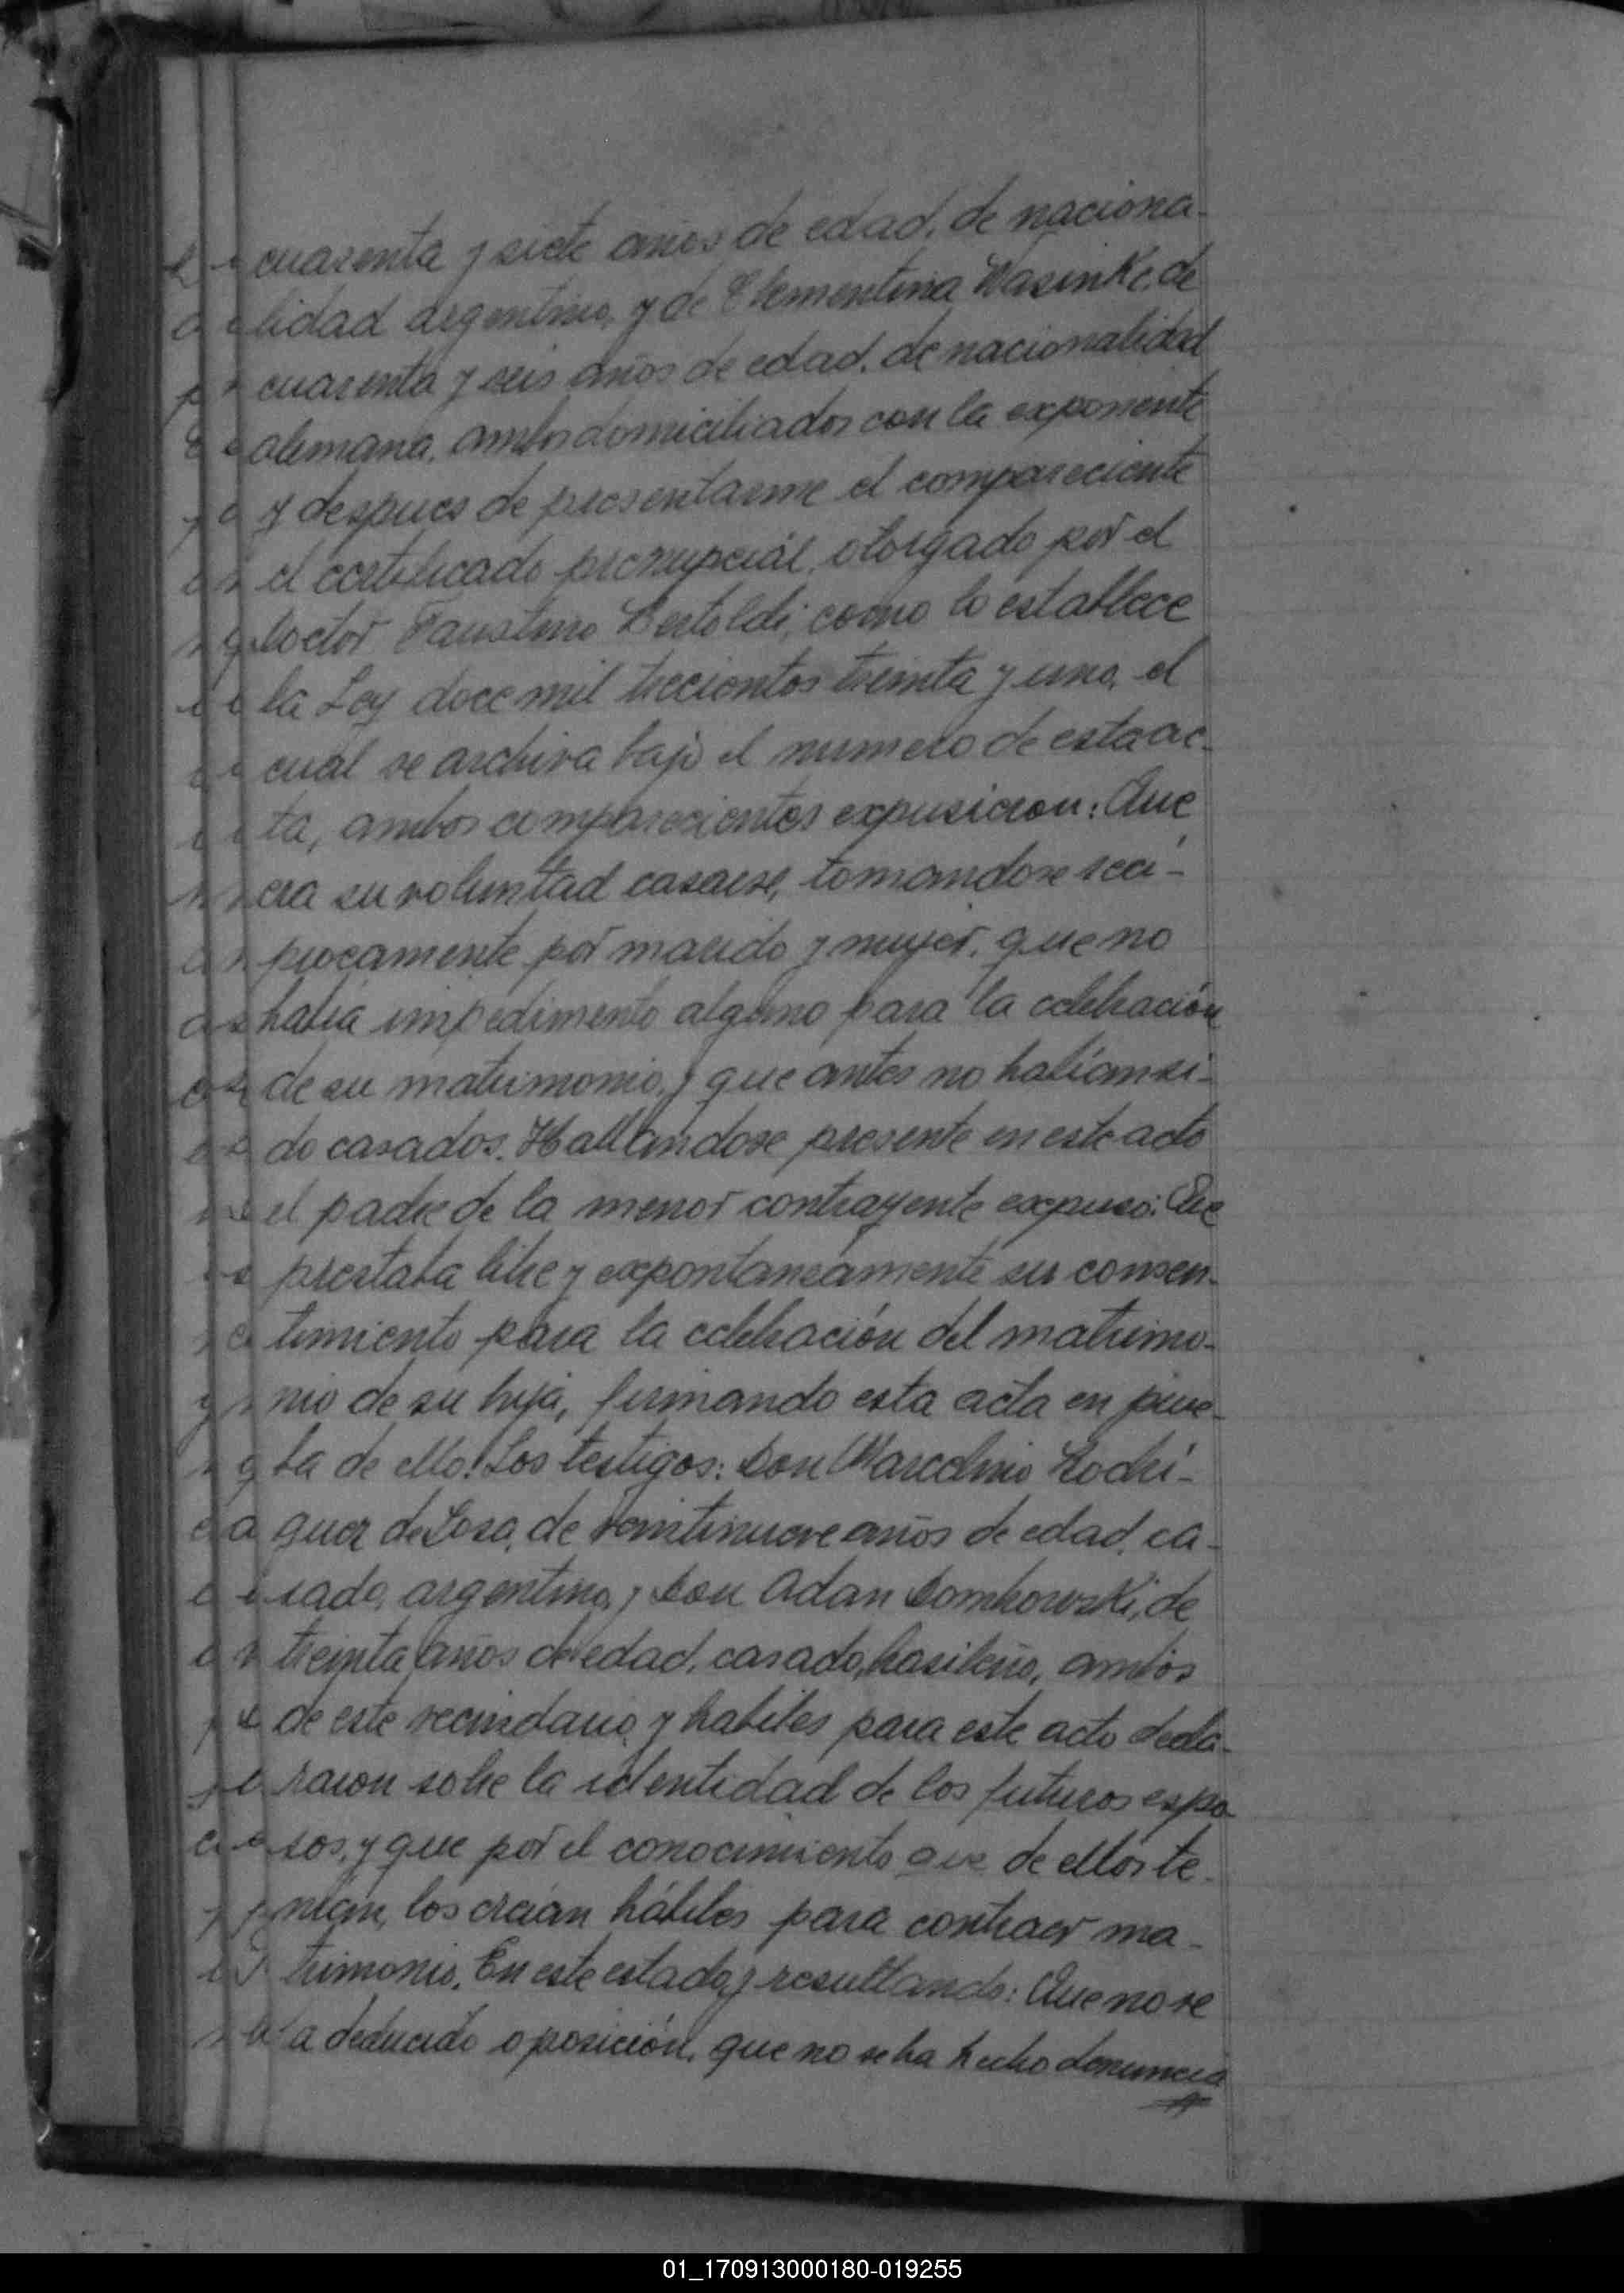 cuarenta y siete años de edad, de naciona-
lidad argentino, y de Clementina Wasinke, de
cuarenta y seis años de edad, de nacionalidad
alemana, ambos domiciliados con la exponente
y despues de presentarme el compareciente
el certificado prenupcial, otorgado por el
Doctor Faustino Bertoldi, como lo establece
la Ley doce mil trecientos treinta y uno, el
cual se archiva bajo el numero de esta ac-
ta, ambos comparecientes expusieron: Que
era su voluntad casarse, tomandose reci-
procamente por marido y mujer, que no
habia impedimento alguno para la celebración
de su matrimonio, y que antes no habían si-
do casados. Hallandose presente en este acto
el padre de la menor contrayente expuso: Que
prestaba libre y expontaneamente su consen-
timiento para la celebración del matrimo-
nio de su hija, firmando esta acta en prue-
ba de ello. Los testigos: Don Marcelino Rodrí-
guez de Sosa, de veintinueve años de edad, ca-
sado, argentino, y Don Adan Dombowski, de
treinta años de edad, casado, brasileño, ambos
de este vecindario, y habiles para este acto decla-
raron sobre la identidad de los futuros espo-
sos, y que por el conocimiento que de ellos te-
nían, los creían hábiles para contraer ma-
trimonio. En este estado, y resultando: Que no se
ha deducido oposición, que no se ha hecho denuncia
01_170913000180-019255